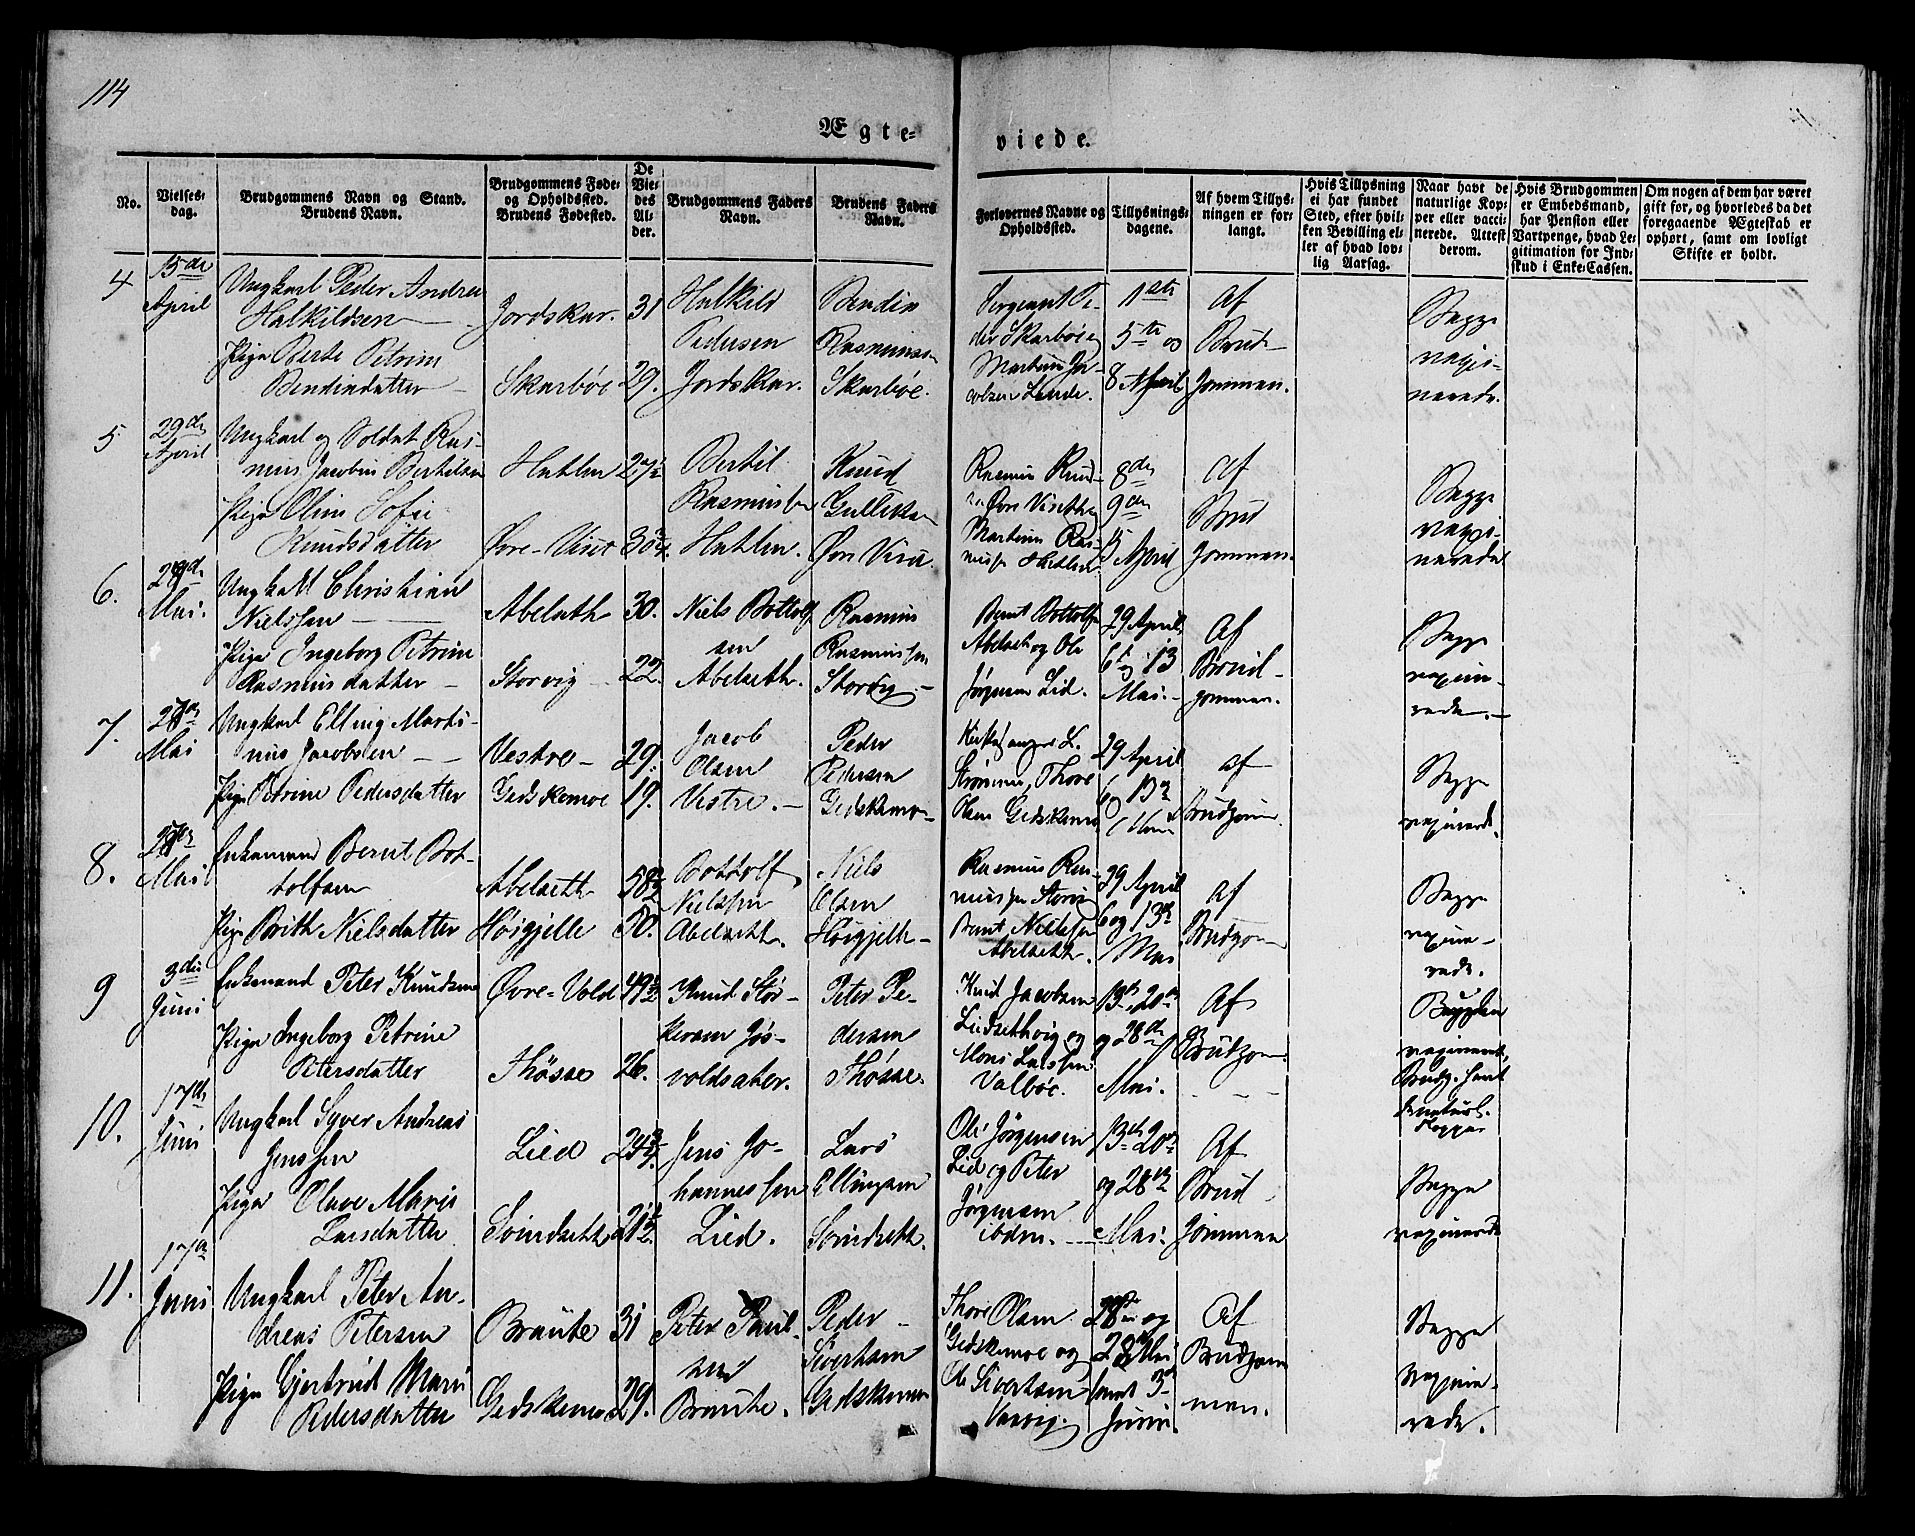 114
Ægte-
viede.
No.
Vielses-
dag.
Brudgommens Navn og Stand.
Brudens Navn.
Brudgommens Føde-
og Opholdssted.
Brudens Fødested.
De
Vie-
des
Al-
der.
Brudgommens Faders
Navn.
Brudens Faders
Navn.
Forlovernes Navne og
Opholdssted.
Tillysnings-
dagene.
Af hvem Tillys-
ningen er for-
langt.
Hvis Tillysning
ei har fundet
Sted, efter hvil-
ken Bevilling el-
ler af hvad lov-
lig Aarsag.
Naar havt de
naturlige Kop-
per eller vacci-
nerede. Attest
derom.
Hvis Brudgommen
er Embedsmand,
har Pension eller
Vartpenge, hvad Le-
gitimation for Ind-
skud i Enke-Cassen.
Om nogen af dem har været
gift før, og hvorledes da det
foregaaende Ægteskab er
ophørt, samt om lovligt
Skifte er holdt.
4
15de
April
Ungkarl Peder Andrea
Halkildsen
Pige Berte Petrine
Bendindatter
Jordskar.
Skarbøe
31
29.
Halkild
Pedersen
Jordskar.
Bendin
Rasmuss
Skarbøe.
Sergeant Pe-
der Skarbøe
Martin
Lande.
1ste
5te og
8 April
Af
Brud-
gommen.
Begge
5
29de
April
Ungkarl og Soldat Ras-
mus Jacobus Bertilsen
Pige Oline Sofie
Knudsdatter
Hatlen
Øvre-Viset
27½
Bertil
Rasmussen
Hatlen.
Knud
Gulliksen
Rasmus Knud-
Martinus Ras-
8de
9de
15 April
af
Brud
gommen.
Begge
6.
Mai.
Ungkarl Christian
Nielssen
Pige Ingeborg Petrine
Rasmusdatter
Abelseth
Storvig
30.
22.
Niels Bottolf
sen
Abelseth.
Rasmus
Rasmussen
Storvig.
Bernt Bottolfs
Abelseth og Ole
Jørgensen Lid.
29 April
6te og 13
Mai.
Af
Brud-
gommen.
Begge
vaxine-
rede.
7.
Mai
Ungkarl Elling Marti-
nus Jacobsen
Pige Petrine Pedersdatter
Vestre
Gedskemoe
29.
19.
Jacob
Olsen
Vestre.
Peder
Pedersen
Gedskemo
Strømmen, Thore
Olsen Gedskemo
29 April
6 13de
af
Brudgom
Begge
vaxinerede.
8.
Mai
Enkemand Bernt Bot-
tolfsen
Pige Brith Nielsdatter
Abelseth
Høigjelle
50.
Bottolf
Nielssen
Abelseth.
Niels
Olsen
Høigjelle
Rasmus Ras-
mussen Storvi
Bernt Nielssen
Abelseth.
29 April
6 og 13de
Mai
af
Brudgom
Begge
vaxine-
rede.
9
3die
Juni
Enkemand Peter Knudsen
Pige Ingeborg Petrine
Petersdatter
Øvre-Vold
Thøsse
26.
Knud Stor-
voldsæter.
Peter Pe-
dersen
Thøsse.
Knud Jacobsen
Lidsethvig og
Mons Larssen
Valbøe.
13de 20de
og 28de
Mai.
Af
Brudgom
Bruden
vaxineret,
Brudg. havt
10.
17de
Juni
Ungkarl Syver Andreas
Jenssen
Pige Olave Marie
Larsdatter
Lied
Soindseth
21½
Jens Jo-
hannessen
Lied.
Lars
Ellingsen
Soindseth.
Ole Jørgensen
Lid og Peter
Jørgensen
ibdm.
13de 20de
og 28de
Mai.
Af
Brud
gommen
Begge
vaxinerede
11.
17de
Juni
Ungkarl Peter An-
dreas Petersen
Pige Gjertrud Marie
Pedersdatter
Braute
Gedskemoe
31
29.
Peter Paul-
sen
Braute.
Peder
Sivertsen
Gedskemo
Thore Olsen
Gedskemoe og
Ole Sivertsen
28de Mai
samt 3die
Juni.
Af
Brudgom
men.
Begge
vaxine-
rede.